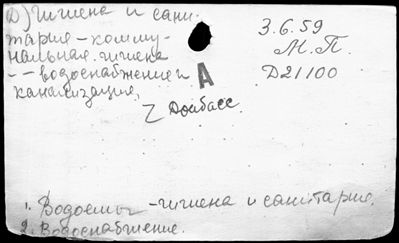 Д) гигиена и сани-
тария - комму-
нальная. гигиена
- - водоснабжение и
канализация,
Донбасс.
А
3.6.59
М.П.
D21100
1. Водоемы - гигиена и санитария.
2. Водоснабжение.